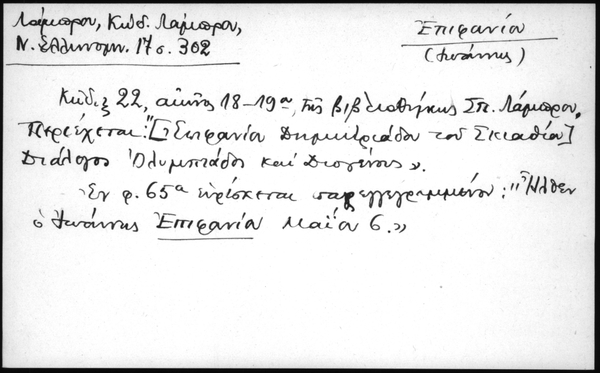 Λάμπρου, Κώδ. Λάμπρου,
Ν. Ἑλληνομν. 17 σ. 302
Ἐπιφανίου
(Ἰωάννης)
Κῶδιξ 22, αἰῶνος 18-19ου, τῆς βιβλιοθήκης Σπ. Λάμπρου.
Περιέχεται: "[Ἐπιφανίου Δημητριάδου τοῦ Σκιαθίου]
Διάλογος Ὀλυμπιάδος καὶ Διογένους».
Ἐν φ. 65α εὑρίσκεται παρεγγεγραμμένον: "Ἦλθεν
ὁ Ἰωάννης Ἐπιφανίου Μαΐου 6.»